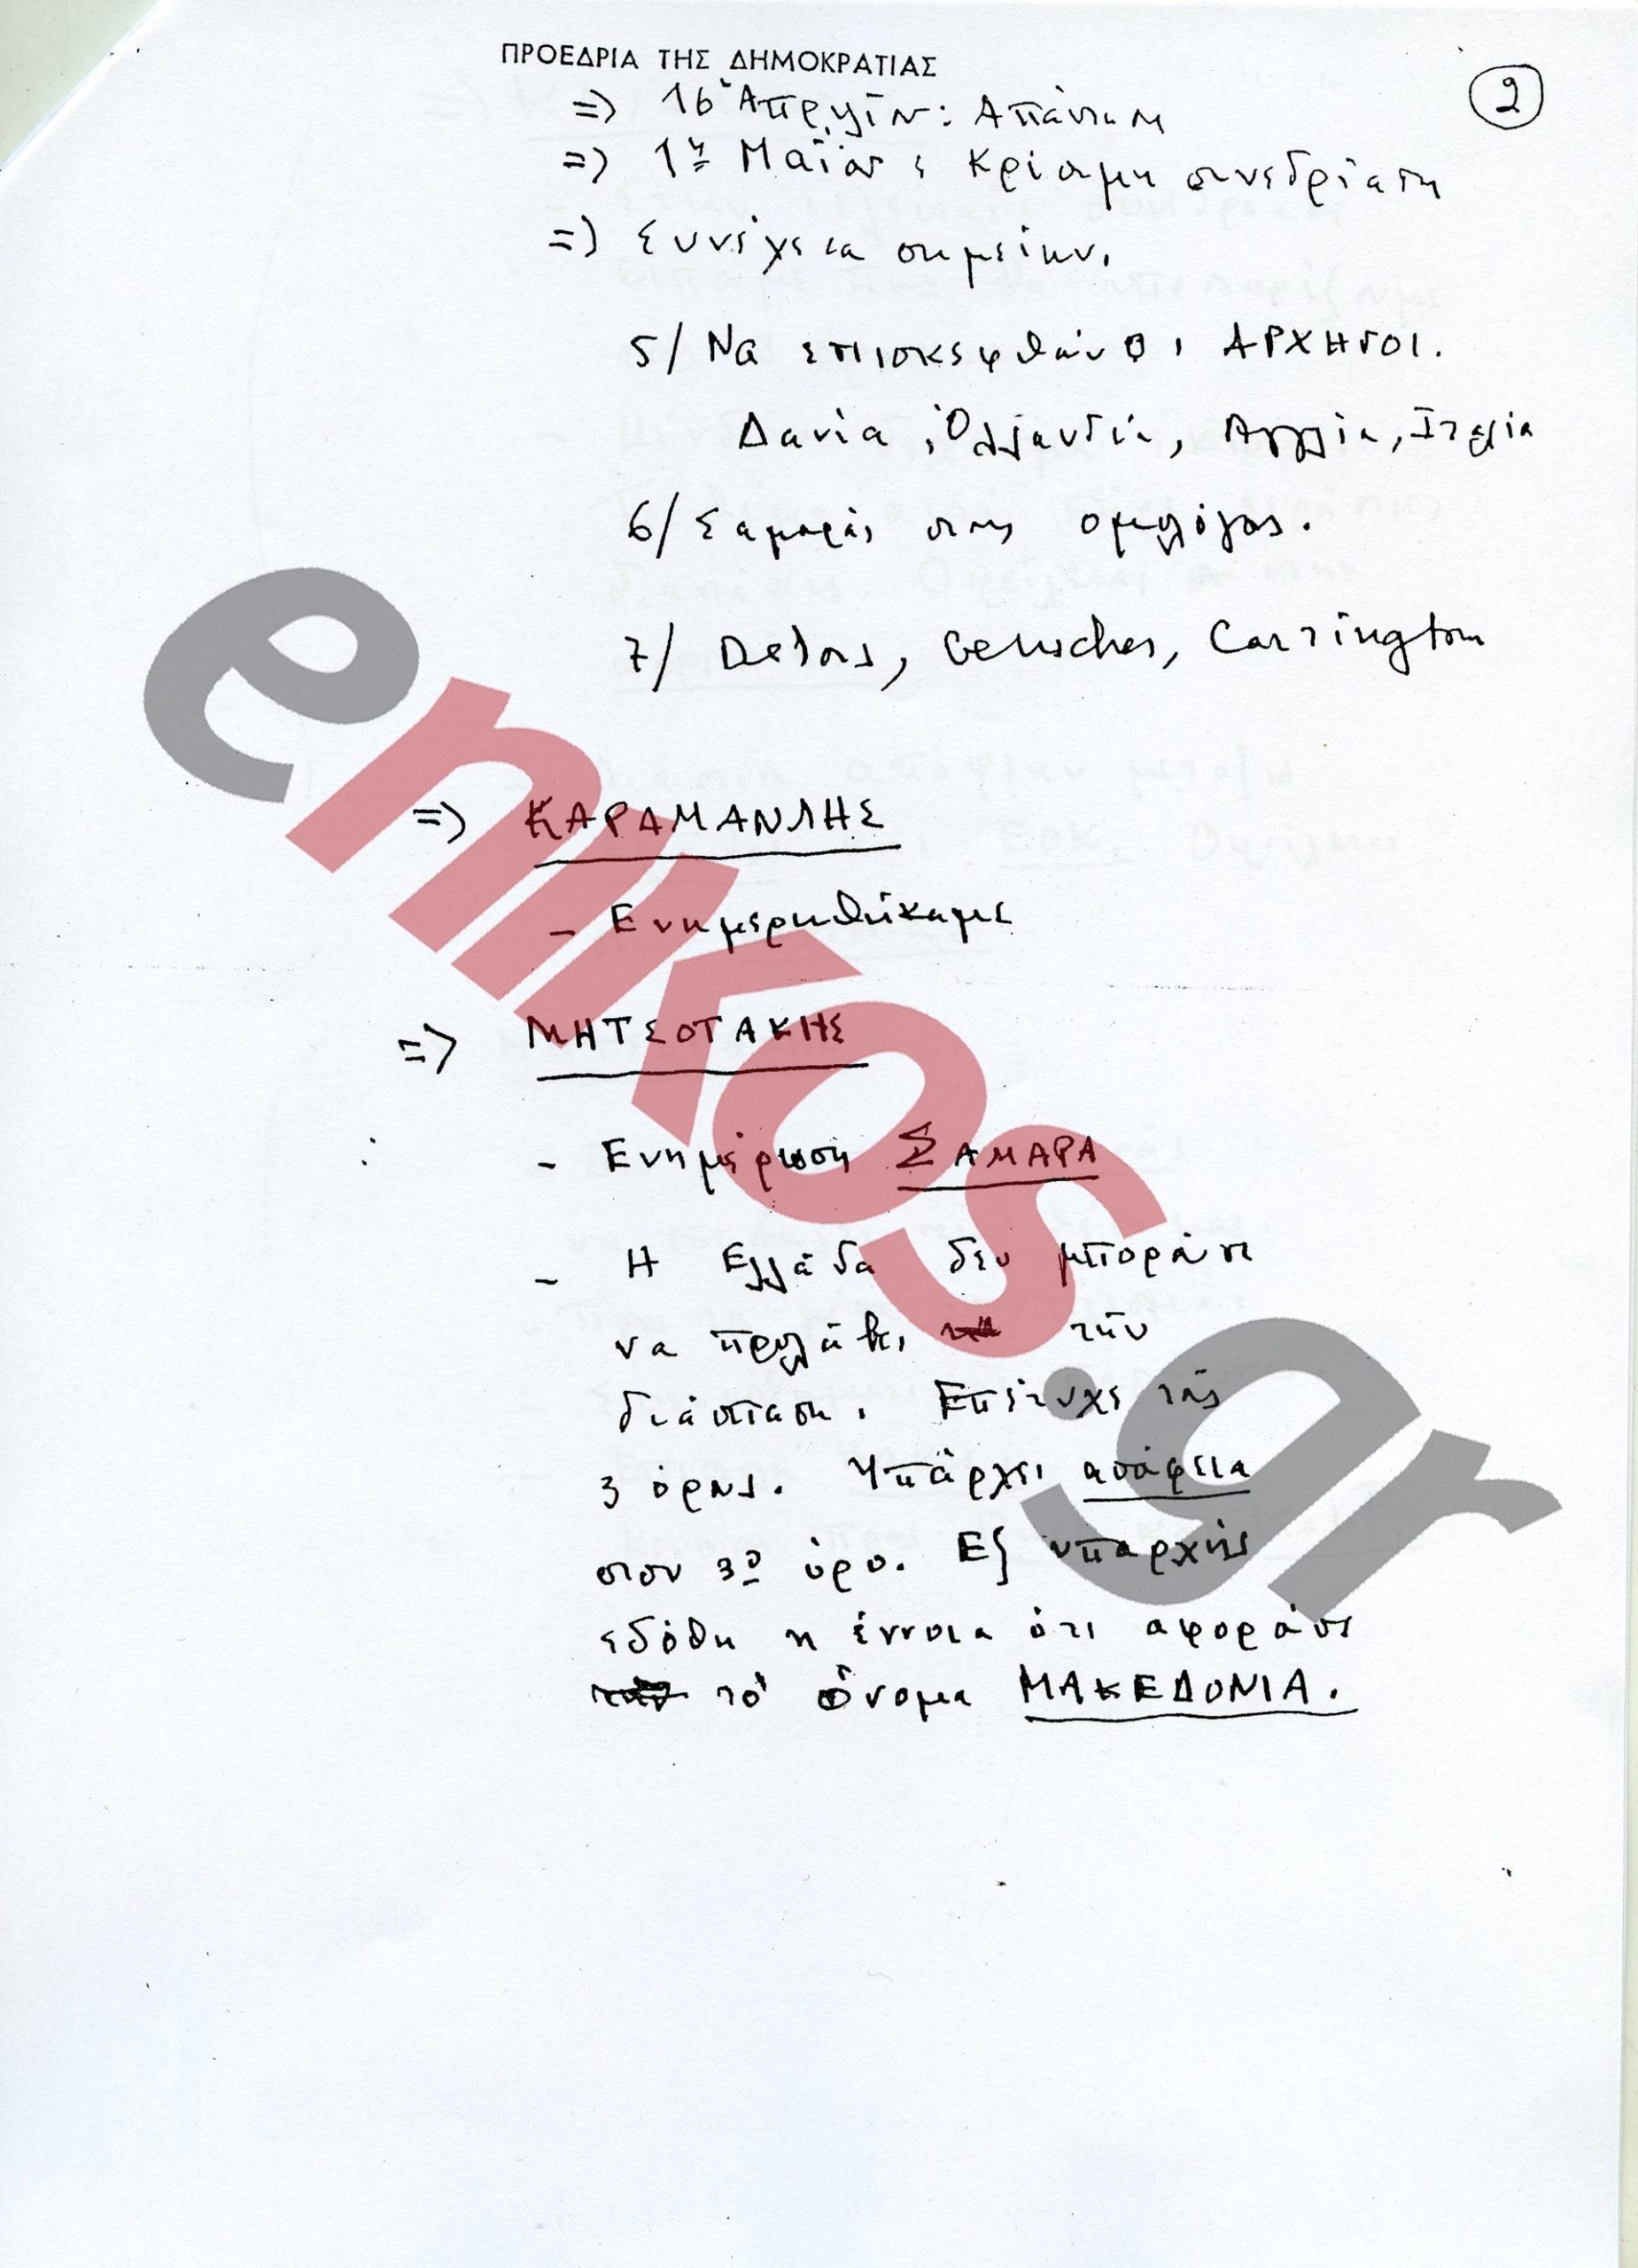 ΠΡΟΕΔΡΙΑ ΤΗΣ ΔΗΜΟΚΡΑΤΙΑΣ
2
=> 16 Απριλίου: Απάντηση
=> 1η Μαΐου: Κρίσιμη συνεδρίαση
=> Συνέχεια σημείων.
5/ Να επισκεφθούν οι ΑΡΧΗΓΟΙ.
Δανία, Ολλανδία, Αγγλία, Ιταλία
6/ Σαμαράς στους ομολόγους.
7/ Delors, Genscher, Carrington
=> ΚΑΡΑΜΑΝΛΗΣ
- Ενημερωθήκαμε
=> ΜΗΤΣΟΤΑΚΗΣ
- Ενημέρωση ΣΑΜΑΡΑ
- Η Ελλάδα δεν μπορούσε
να προλάβει την
διάσπαση. Επέτυχε τους
3 όρους. Υπάρχει ασάφεια
στον 3ο όρο. Εξ υπαρχής
εδόθη η έννοια ότι αφορούσε
το όνομα ΜΑΚΕΔΟΝΙΑ.
enikos.gr